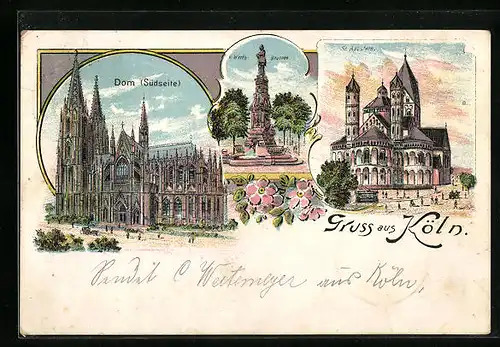 Dom (Südseite)
Brunnen.
St. Aposteln.
Gruss aus Köln.
Sendet C Westemeyer aus Köln,